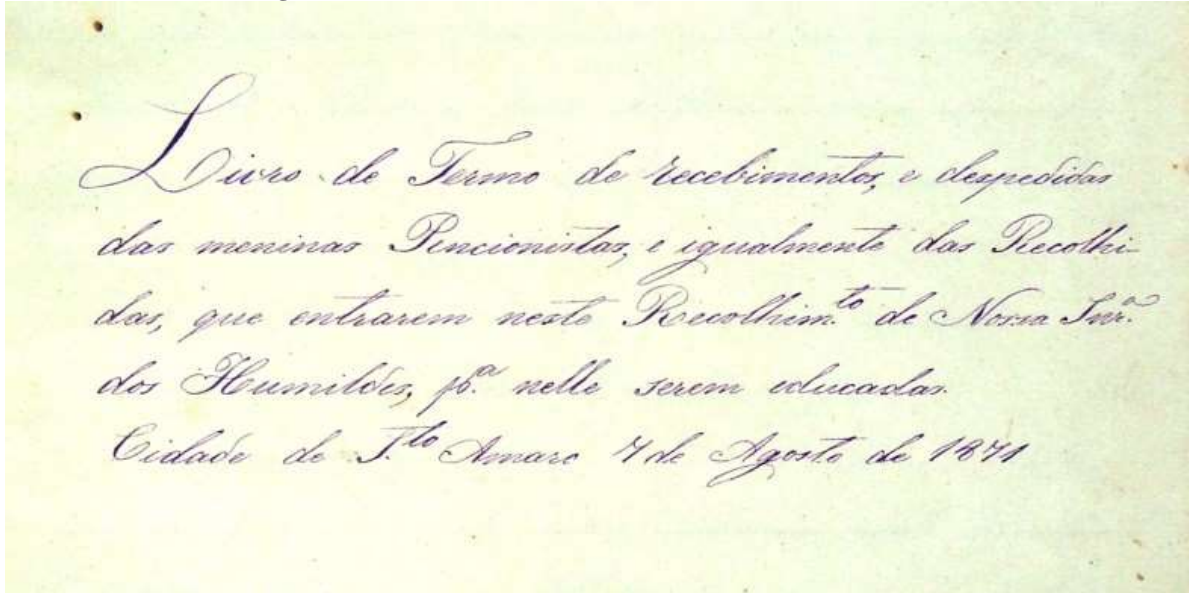 Livro de Termo de recebimentos, e despedidas
das meninas Pencionistas, e igualmente das Recolhi-
das, que entrarem neste Recolhim.to de Nossa Snr.a
dos Humildes, p.a nelle serem educadas.
Cidade de S.to Amaro 7 de Agosto de 1871